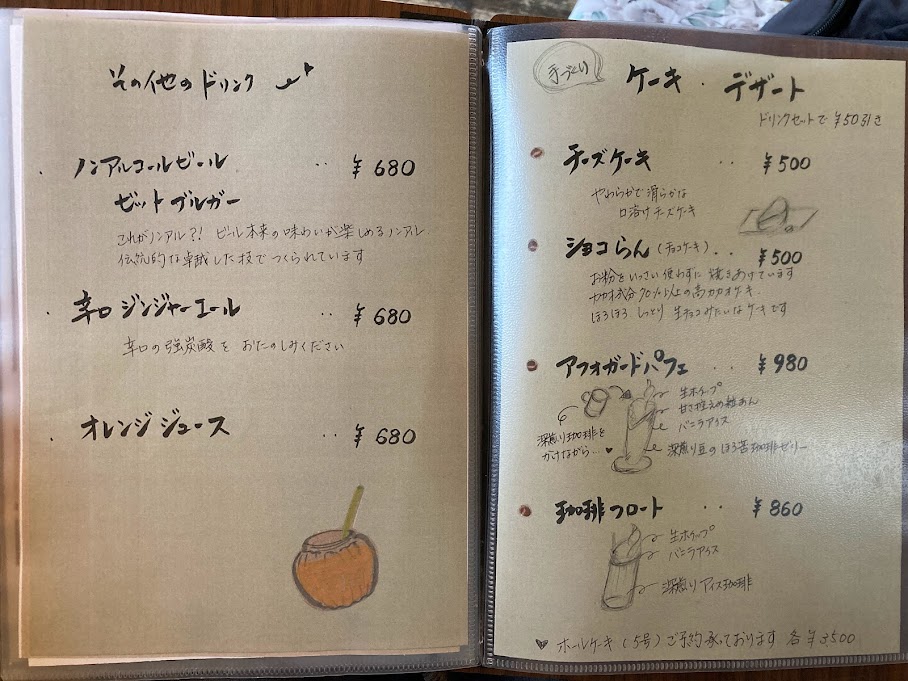 その他のドリンク
ノンアルコールビール ‥ ¥680
ゼットブルガー
これがノンアル?! ビール本来の味わいが楽しめるノンアル
伝統的な卓越した技でつくられています
辛口ジンジャーエール ‥ ¥680
辛口の強炭酸を おたのしみください
オレンジジュース ‥ ¥680
手づくり
ケーキ・デザート
ドリンクセットで ¥50引き
チーズケーキ ‥ ¥500
やわらかで滑らかな
口溶けチーズケーキ
ショコらん(チョコケーキ) ‥ ¥500
お粉をいっさい使わずに 焼きあげています
カカオ分70%以上の高カカオケーキ.
ほろほろ しっとり 生チョコみたいなケーキです
アフォガードパフェ ‥ ¥980
生ホイップ
甘さ控えめ粒あん
バニラアイス
深煎り豆のほろ苦珈琲ゼリー
深煎り珈琲を
かけながら…♥
珈琲フロート ‥ ¥860
生ホイップ
バニラアイス
深煎りアイス珈琲
♥ ホールケーキ(5号)ご予約承っております 各¥3,500